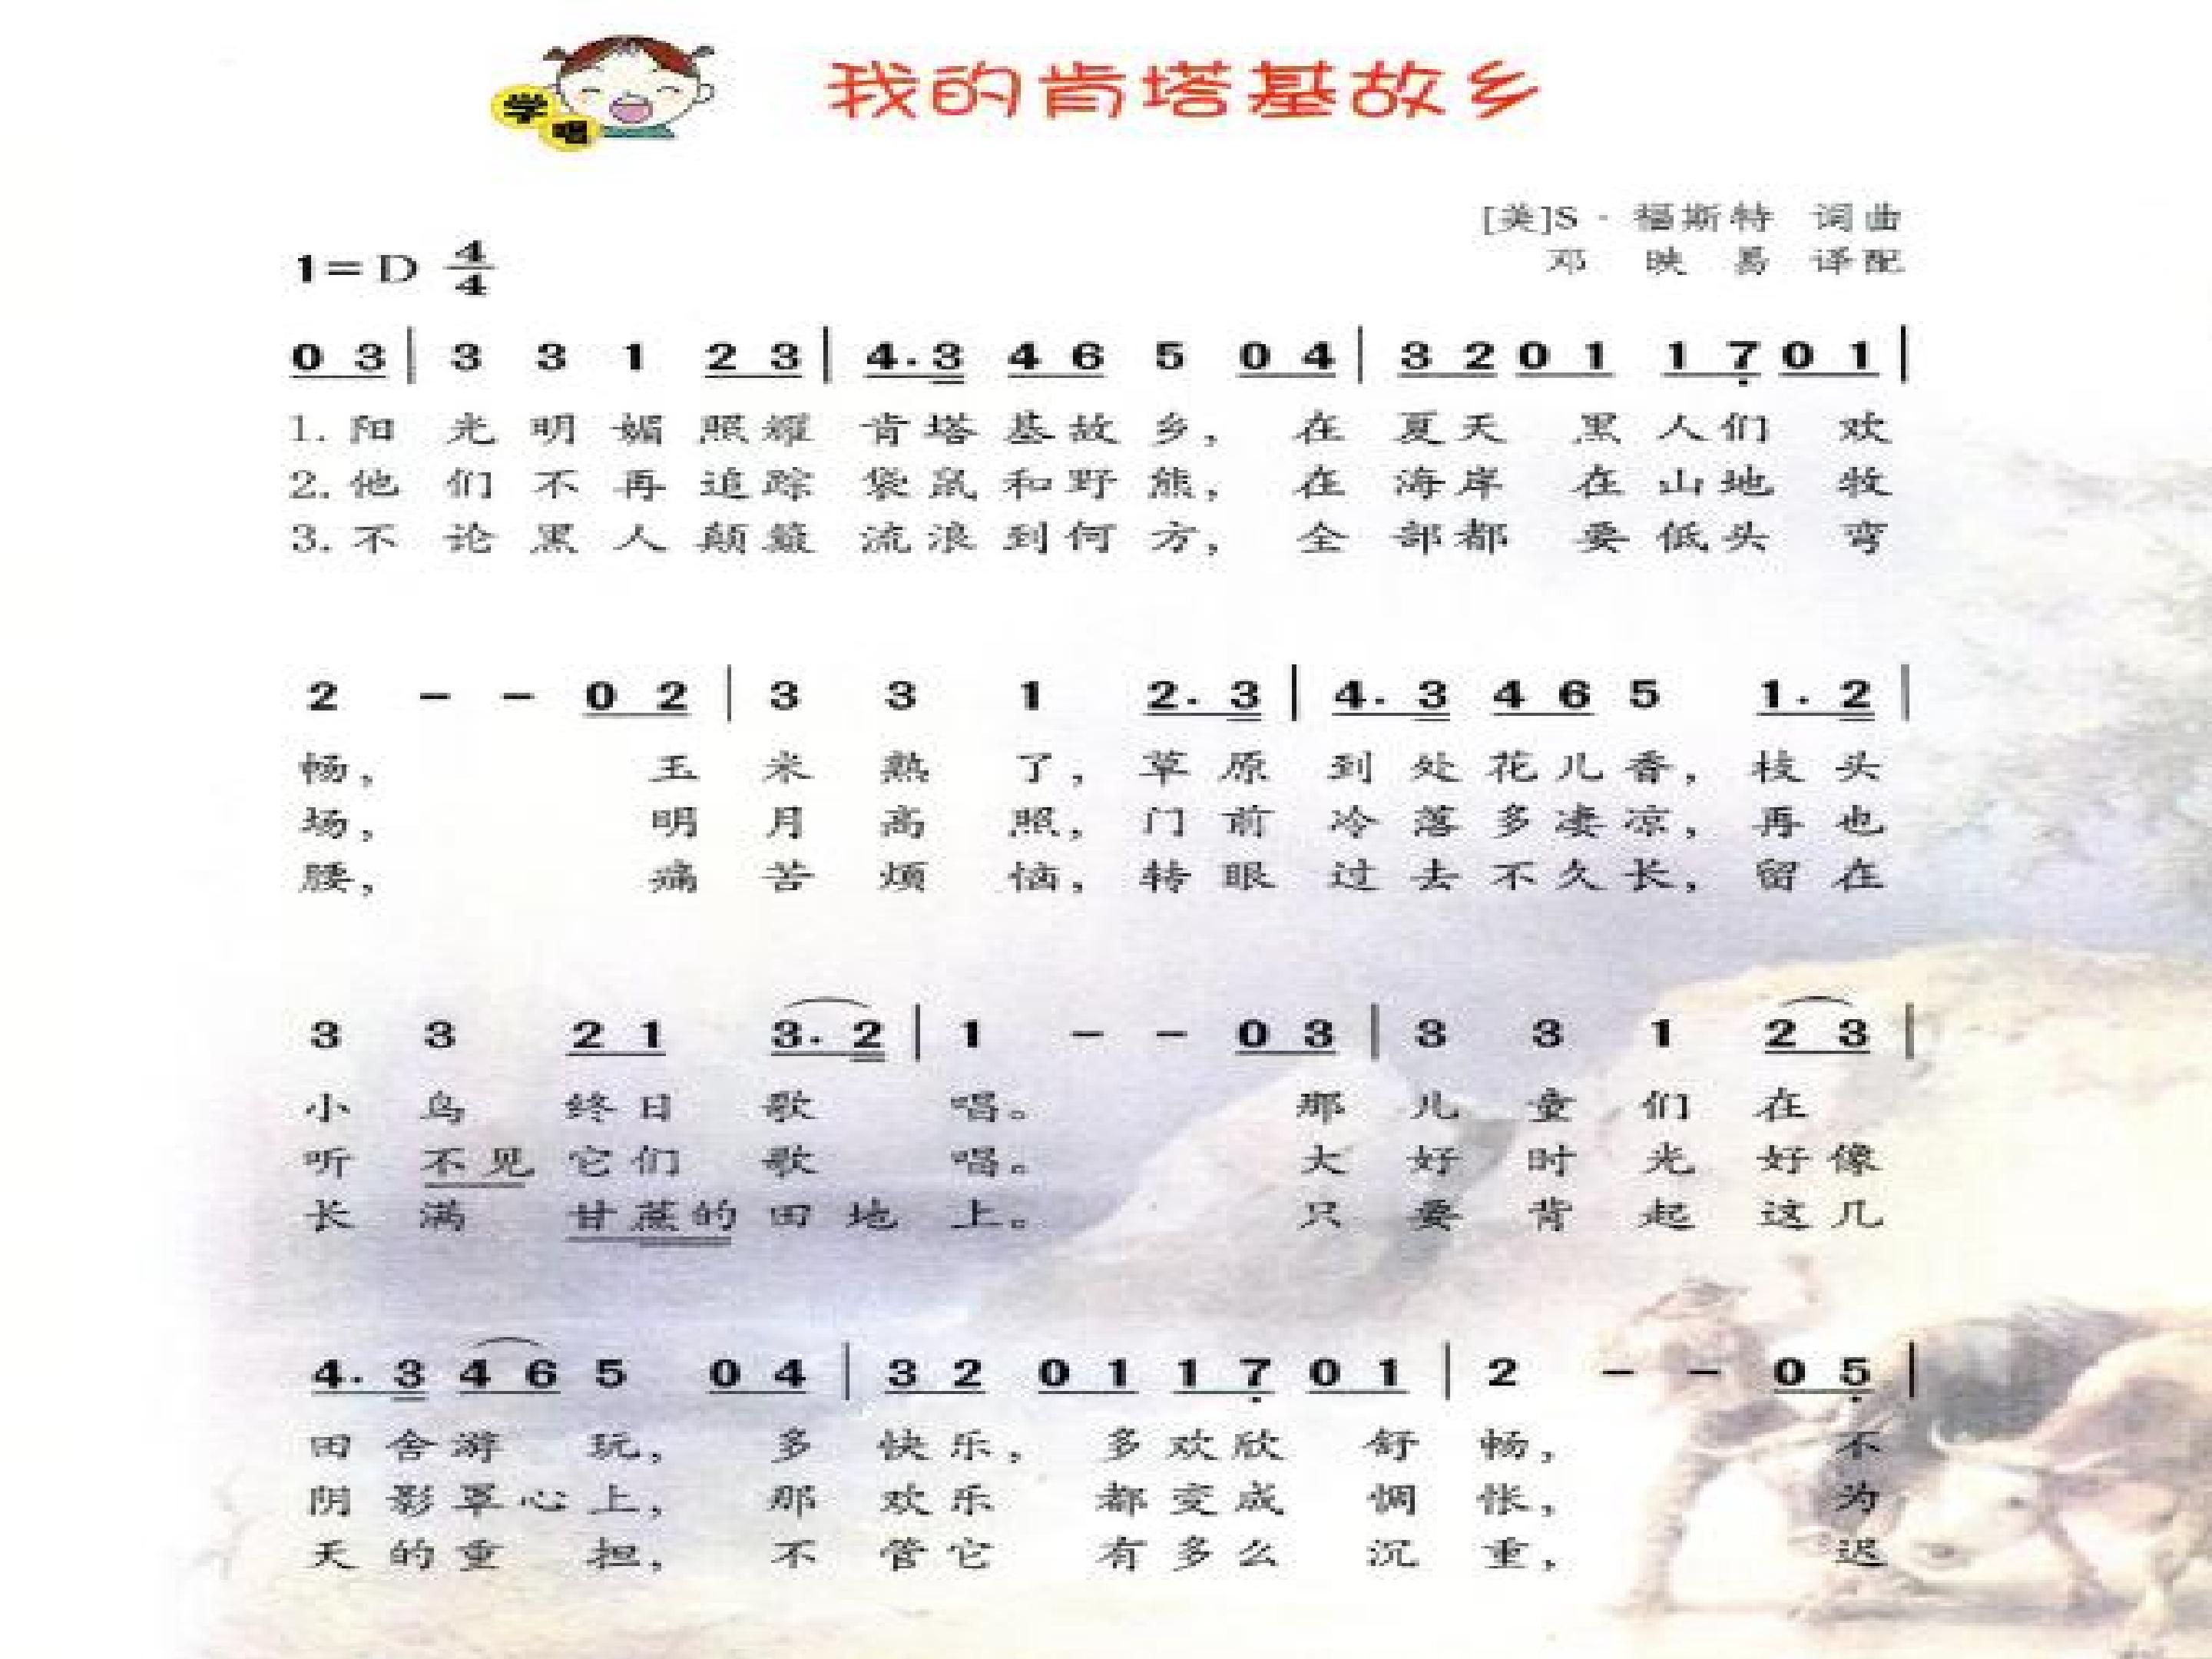 学
唱
我的肯塔基故乡
[美]S·福斯特 词曲
邓映易 译配
1=D 4/4
0 3 | 3 3 1 2 3 | 4·3 4 6 5 0 4 | 3 2 0 1 1 7 0 1 |
1.阳 光明媚照耀 肯塔基故乡, 在 夏天 黑人们 欢
2.他 们不再追踪 袋鼠和野熊, 在 海岸 在山地 牧
3.不 论黑人颠簸 流浪到何方, 全 部都 要低头 弯
2 - - 0 2 | 3 3 1 2. 3 | 4. 3 4 6 5 1. 2 |
畅, 玉 米熟了,草原 到处花儿香,枝头
场, 明 月高照,门前 冷落多凄凉,再也
腰, 痛 苦烦恼,转眼 过去不久长,留在
3 3 2 1 3. 2 | 1 - - 0 3 | 3 3 1 2 3 |
小鸟 终日 歌 唱。 那 儿童们在
听 不见 它们 歌 唱。 大 好时光好像
长满 甘蔗的 田地 上。 只 要背起这几
4. 3 4 6 5 0 4 | 3 2 0 1 1 7 0 1 | 2 - - 0 5 |
田舍游 玩, 多 快乐, 多欢欣 舒 畅, 不
阴影罩心上, 那 欢乐 都变成 惆 怅, 为
天的重 担, 不 管它 有多么 沉 重, 迟